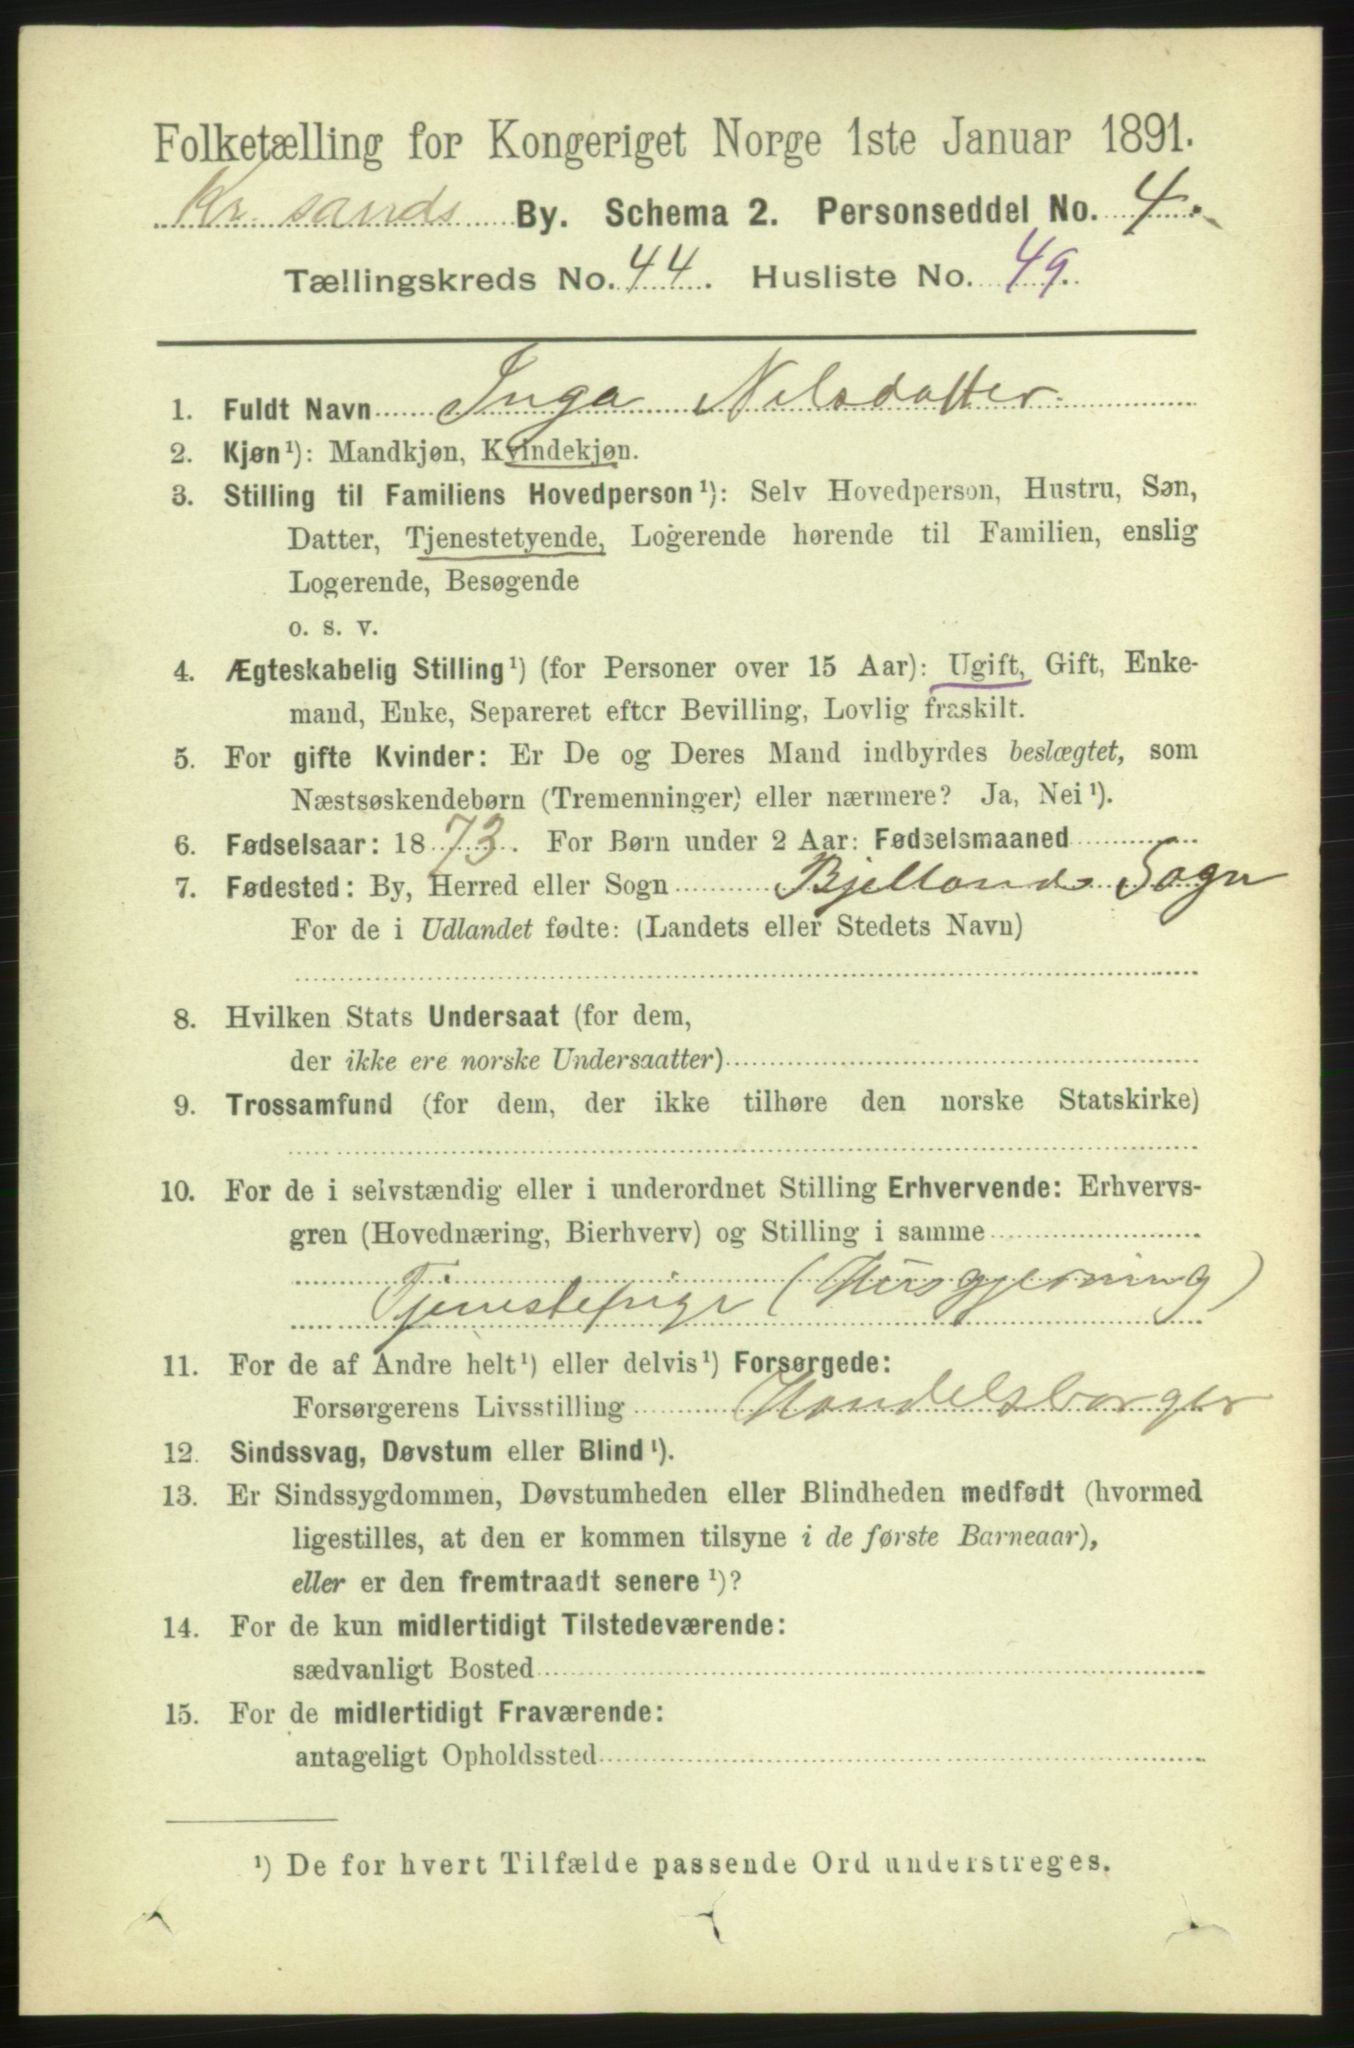 Folketælling for Kongeriget Norge 1ste Januar 1891.
Kr. sands By. Schema 2. Personseddel No. 4.
Tællingskreds No. 44. Husliste No. 49.
1. Fuldt Navn Inga Nilsdatter
2. Kjøn¹): Mandkjøn, Kvindekjøn.
3. Stilling til Familiens Hovedperson¹): Selv Hovedperson, Hustru, Søn,
Datter, Tjenestetyende, Logerende hørende til Familien, enslig
Logerende, Besøgende
o. s. v.
4. Ægteskabelig Stilling¹) (for Personer over 15 Aar): Ugift, Gift, Enke-
mand, Enke, Separeret efter Bevilling, Lovlig fraskilt.
5. For gifte Kvinder: Er De og Deres Mand indbyrdes beslægtet, som
Næstsøskendebørn (Tremenninger) eller nærmere? Ja, Nei¹).
6. Fødselsaar: 1873. For Børn under 2 Aar: Fødselsmaaned
7. Fødested: By, Herred eller Sogn Bjellands Sogn
For de i Udlandet fødte: (Landets eller Stedets Navn)
8. Hvilken Stats Undersaat (for dem,
der ikke ere norske Undersaatter)
9. Trossamfund (for dem, der ikke tilhøre den norske Statskirke)
10. For de i selvstændig eller i underordnet Stilling Erhvervende: Erhvervs-
gren (Hovednæring, Bierhverv) og Stilling i samme
Tjenestepige (Husgjerning)
11. For de af Andre helt¹) eller delvis¹) Forsørgede:
Forsørgerens Livsstilling Handelsborger
12. Sindssvag, Døvstum eller Blind¹).
13. Er Sindssygdommen, Døvstumheden eller Blindheden medfødt (hvormed
ligestilles, at den er kommen tilsyne i de første Barneaar),
eller er den fremtraadt senere¹)?
14. For de kun midlertidigt Tilstedeværende:
sædvanligt Bosted
15. For de midlertidigt Fraværende:
antageligt Opholdssted
¹) De for hvert Tilfælde passende Ord understreges.